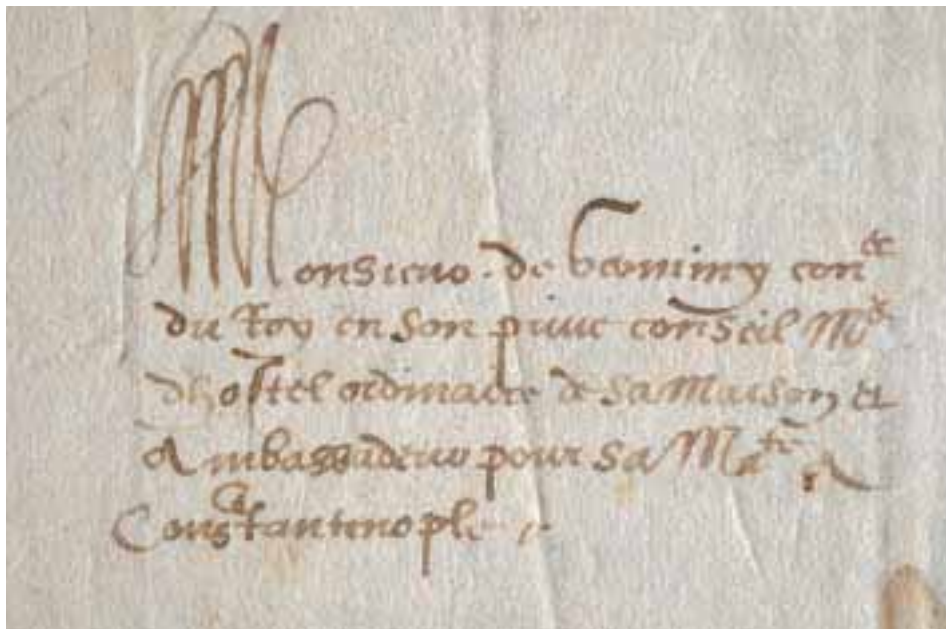 Monsieur de Germiny con.er
du Roy en son prive conseil M.e
dhostel ordinaire de sa Maison et
Ambassadeur pour sa Ma.te a
Constantinople